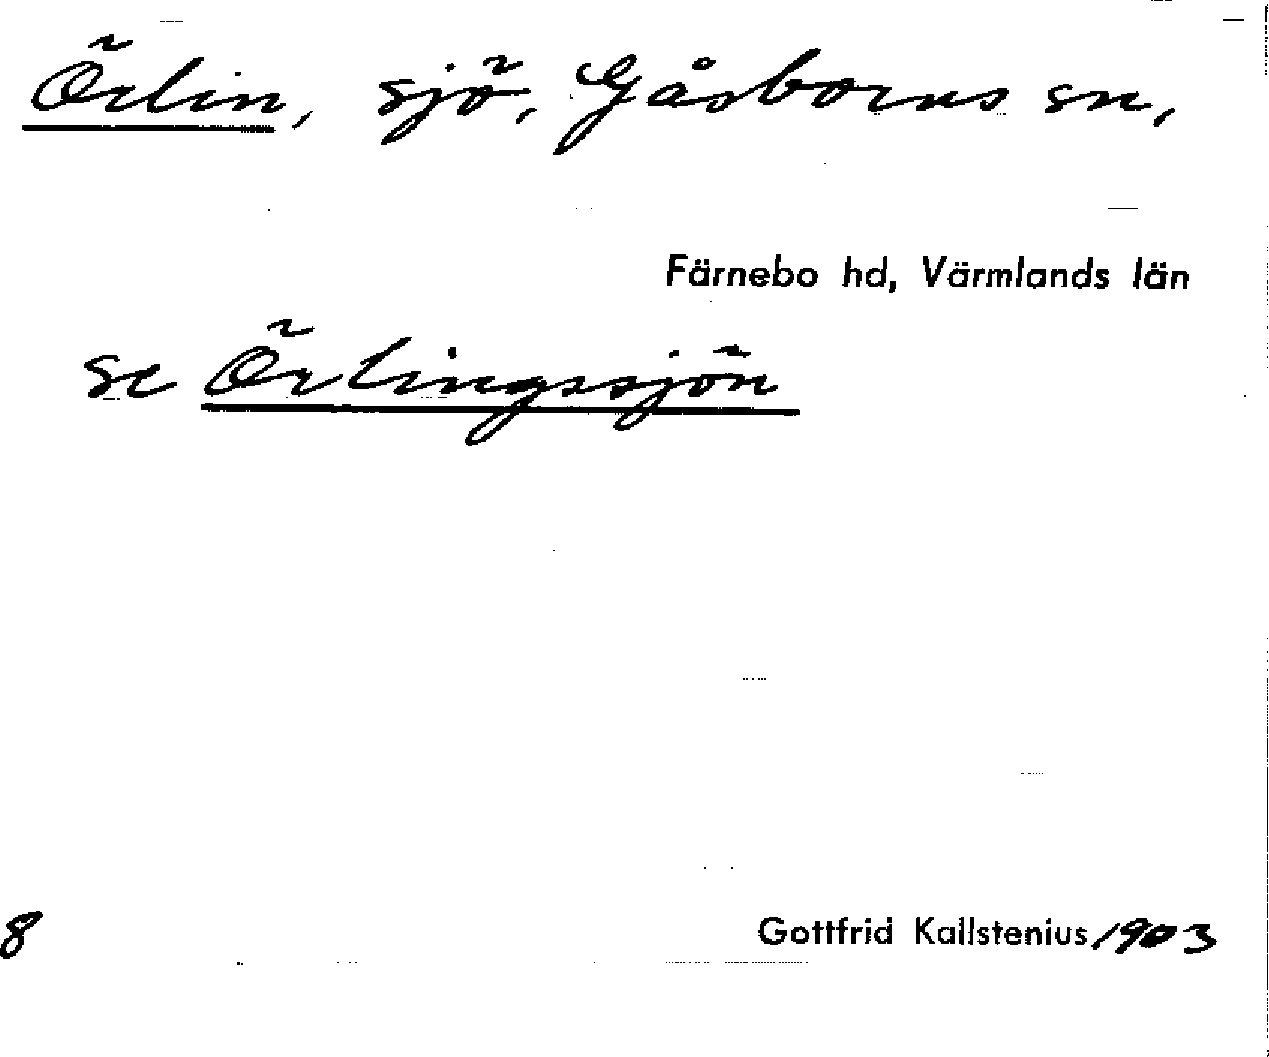 Örlin, sjö, Gåsborns sn,
Färnebo hd, Värmlands län
se Örlingssjön
8
Gottfrid Kallstenius 1903